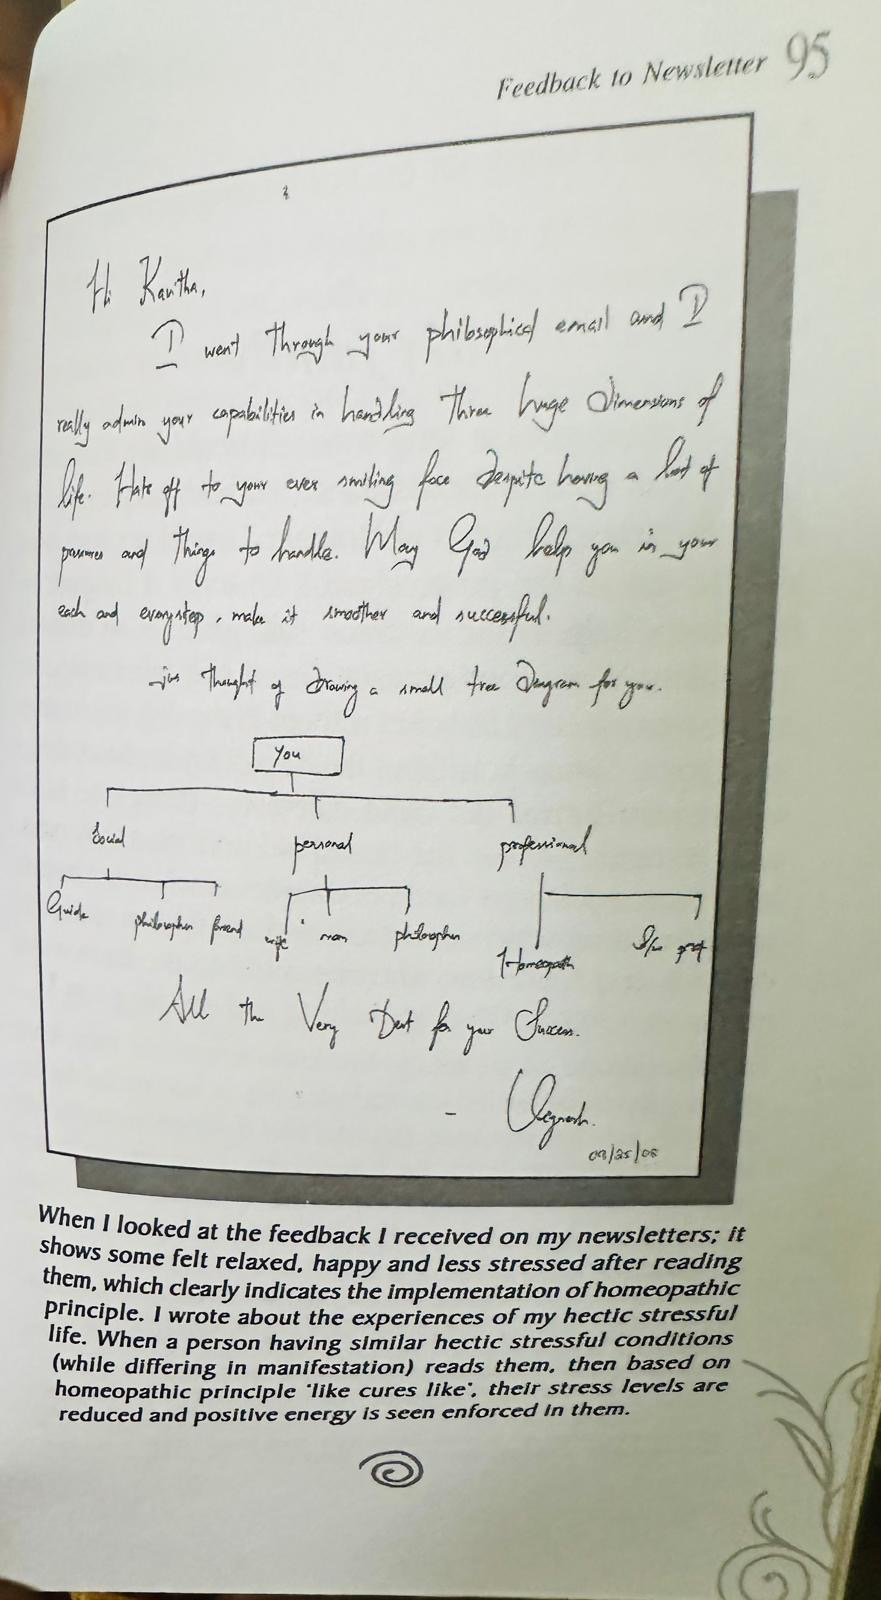 Feedback to Newsletter 95
Hi Kavitha,
I went through your philosophical email and I
really admire your capabilities in handling three huge dimensions of
life. Hats off to your ever smiling face despite having a lot of
pressures and things to handle. May God help you in your
each and everystep, make it smoother and successful.
Jus thought of drawing a small tree diagram for you.
You
Social personal professional
Guide philosopher friend wife mom philosopher Homeopath S/w prof
All the Very Best for your Success.
-
09/25/08
When I looked at the feedback I received on my newsletters; it
shows some felt relaxed, happy and less stressed after reading
them, which clearly indicates the implementation of homeopathic
principle. I wrote about the experiences of my hectic stressful
life. When a person having similar hectic stressful conditions
(while differing in manifestation) reads them, then based on
homeopathic principle 'like cures like', their stress levels are
reduced and positive energy is seen enforced in them.